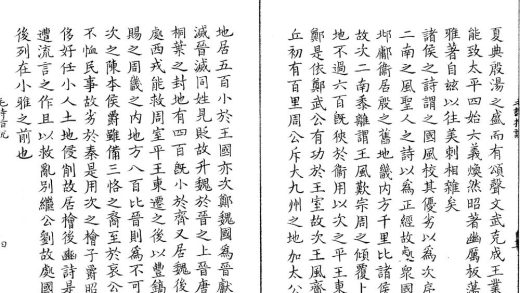 夏典殷湯之盛而有頌聲文武克成王業
能致太平四始六義煥然昭著幽厲板蕩
雅著自兹以往美刺相雜矣
諸侯之詩謂之國風校其優劣以為次序
二南之風聖人之詩以為正經故處衆國
邶鄘衞居殷之舊地畿内方千里比諸侯
故次二南黍離雖謂王風歎宗周之傾覆上
地不過六百既狹於衞用以次之平王東
鄭是依鄭武公有功於王室故次王風齊
丘初有百里周公斥大九州之地加太公
地居五百小於王國亦次鄭魏國為晉獻
滅晉滅同姓見貶故升魏於晉之上晉唐
桐葉之封地有四百既小於齊又居魏後
處西戎能救周室平王東遷之後以豐鎬
賜之周畿之内地方八百比晉則為不可
次之陳本侯爵雖備三恪之裔至於哀公
不恤民事故劣於秦是用次之檜子爵昭
侈好任小人土地侵削故居檜後豳詩是
遭流言之作且以救亂別繼公劉故處國
後列在小雅之前也
四